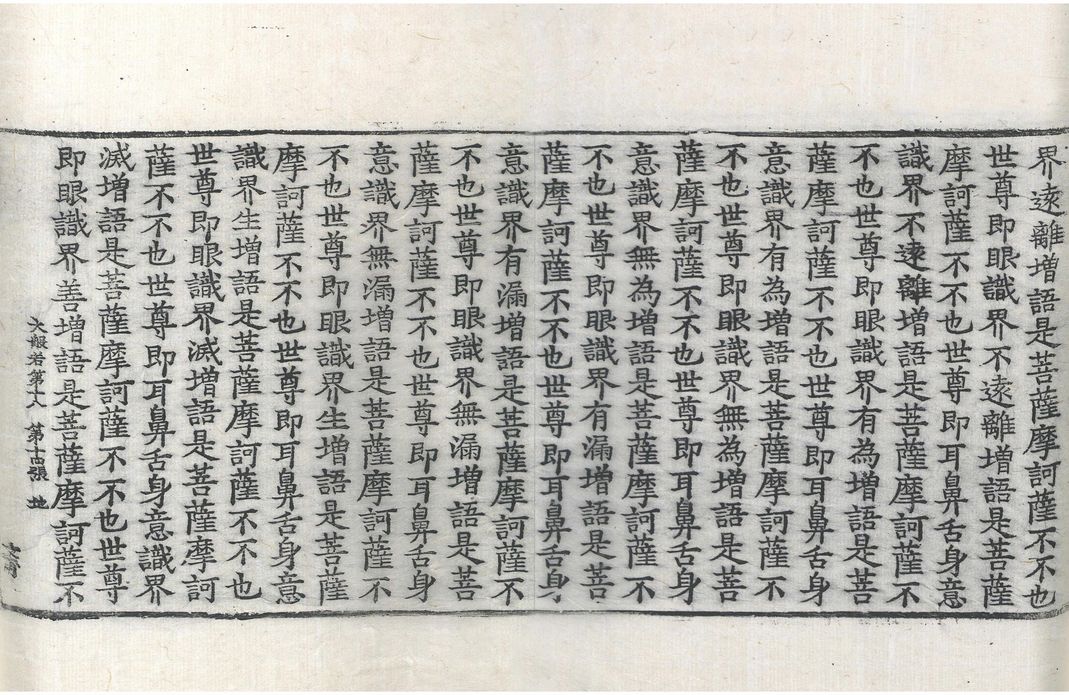 界遠離增語是菩薩摩訶薩不不也
世尊即眼識界不遠離增語是菩薩
摩訶薩不不也世尊即耳鼻舌身意
識界不遠離增語是菩薩摩訶薩不
不也世尊即眼識界有為增語是菩
薩摩訶薩不不也世尊即耳鼻舌身
意識界有為增語是菩薩摩訶薩不
不也世尊即眼識界無為增語是菩
薩摩訶薩不不也世尊即耳鼻舌身
意識界無為增語是菩薩摩訶薩不
不也世尊即眼識界有漏增語是菩
薩摩訶薩不不也世尊即耳鼻舌身
意識界有漏增語是菩薩摩訶薩不
不也世尊即眼識界無漏增語是菩
薩摩訶薩不不也世尊即耳鼻舌身
意識界無漏增語是菩薩摩訶薩不
不也世尊即眼識界生增語是菩薩
摩訶薩不不也世尊即耳鼻舌身意
識界生增語是菩薩摩訶薩不不也
世尊即眼識界滅增語是菩薩摩訶
薩不不也世尊即耳鼻舌身意識界
滅增語是菩薩摩訶薩不不也世尊
即眼識界善增語是菩薩摩訶薩不
大般若第十八 第十四張 地